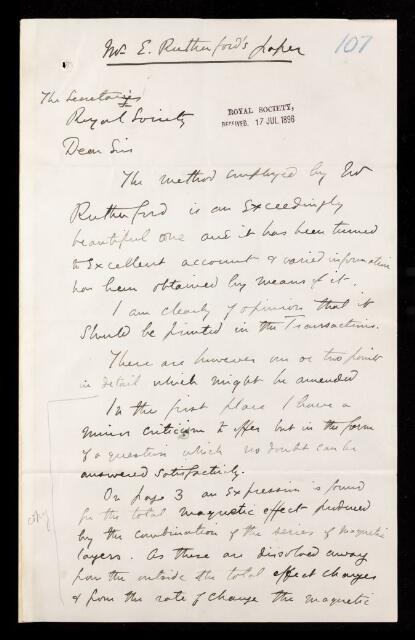 Mr E. Rutherford's paper
107
The Secretary
Royal Society
ROYAL SOCIETY,
RECEIVED. 17 JUL. 1896
Dear Sirs
The method employed by Mr
Rutherford is an exceedingly
beautiful one and it has been turned
to excellent account & varied information
has been obtained by means of it.
I am clearly of opinion that it
should be printed in the Transactions.
There are however one or two points
in detail which might be amended
In the first place I have a
minor criticism to offer but in the form
of a question which no doubt can be
answered satisfactorily.
On page 3 an expression is found
for the total magnetic effect produced
by the combination of the series of magnetic
layers. As these are dissolved away
from the outside the total effect changes
& from the rate of change the magnetic
copy